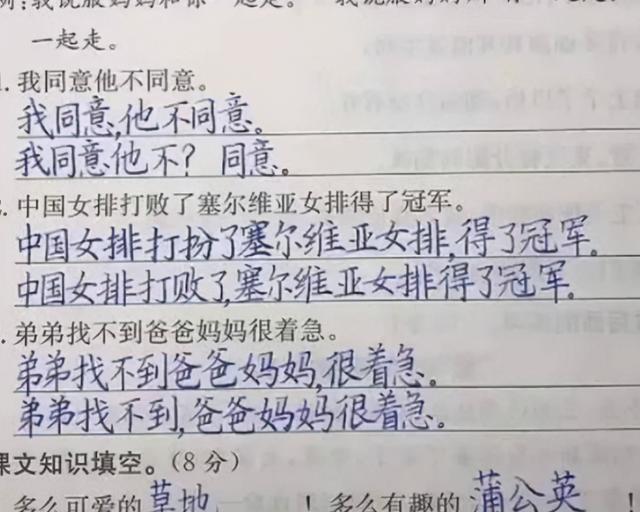 例:我说服妈妈和你一起走。 我说服妈妈
一起走。
1. 我同意他不同意。
我同意,他不同意。
我同意他不? 同意。
2. 中国女排打败了塞尔维亚女排得了冠军。
中国女排打扮了塞尔维亚女排,得了冠军。
中国女排打败了,塞尔维亚女排得了冠军。
. 弟弟找不到爸爸妈妈很着急。
弟弟找不到爸爸妈妈,很着急。
弟弟找不到,爸爸妈妈很着急。
课文知识填空。(8分)
多么可爱的草地! 多么有趣的蒲公英!